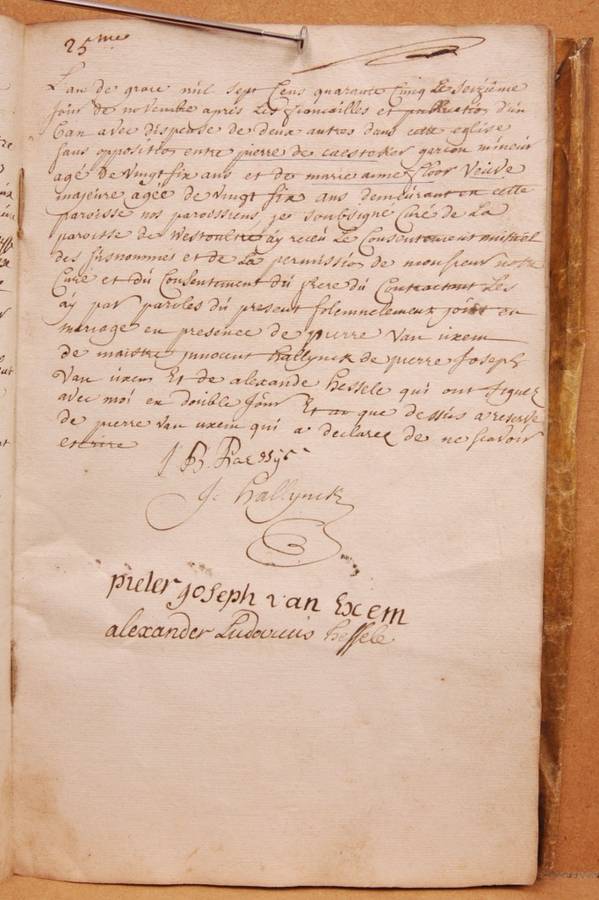 25me
L'an de grace mil sept Cens quarante Cinq Le Seizieme
Jour de novembre apres Les fiancailles et publication d'un
ban avec dispense de deux autres dans cette eglise
sans opposition entre pierre de caesteker garcon mineur
agé de vingt six ans et de marie anne floor Veuve
majeure agée de vingt six ans demeurant en cette
paroisse nos paroissiens, je Soubsigne Curé de La
paroisse de Westoultre ay receu Le Consentement mutuel
des susnommes et de La permission de monsieur notre
Curé et du Consentement du pere du Contractant Les
ay par paroles du present solemnelement joint en
mariage en presence de pierre Van uxem
de maistre jnnocent hallynck de pierre Joseph
Van uxem Et de alexandre hessele qui ont signez
avec moi en double Jour Et an que dessus a reserve
de pierre van uxem qui a declareé de ne scavoir
escrire
J B
J. hallynck
pieter joseph van Excem
alexander Ludovicus hessele